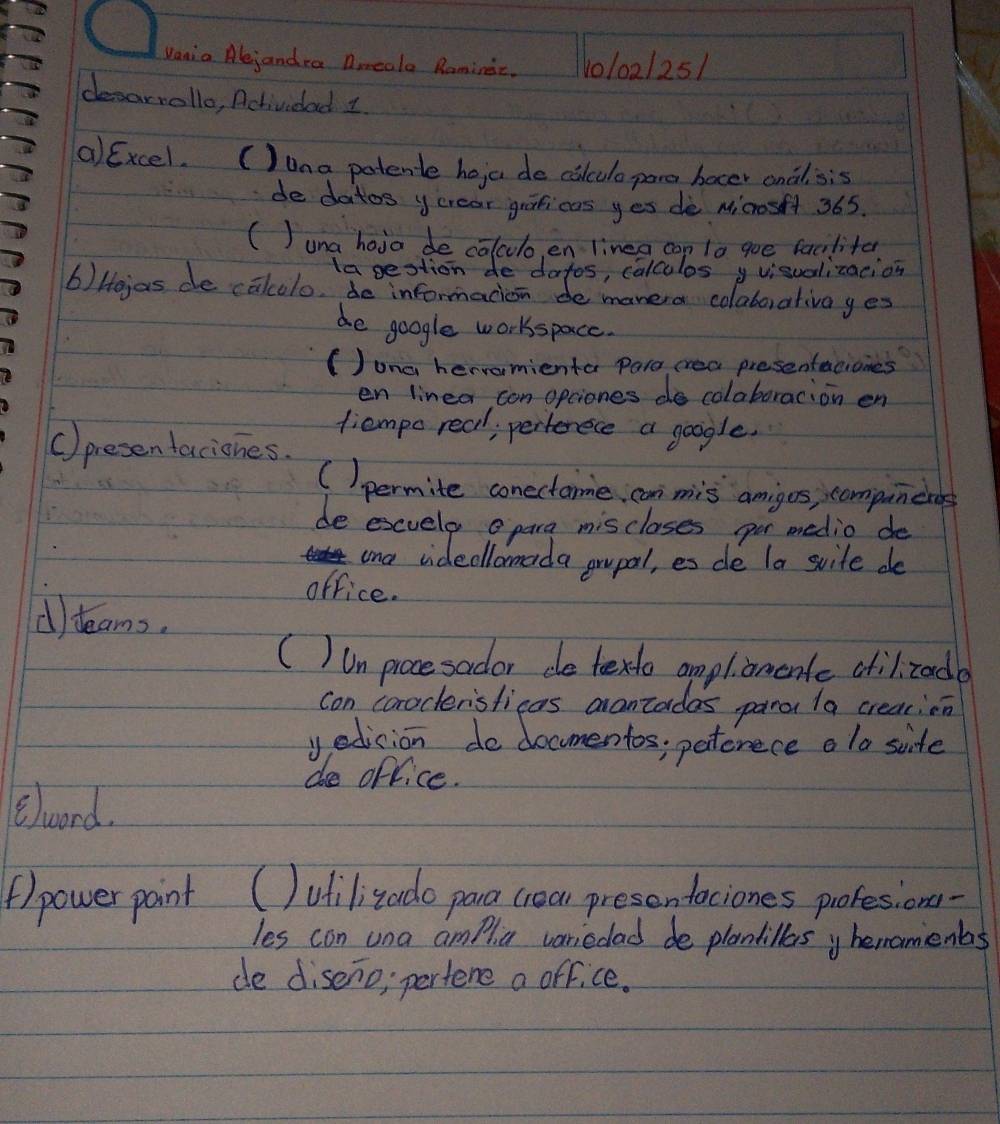 Vania Alejandra Arreola Ramiréz. 10/02/25/
desarrollo, Actividad 1.
a) Excel. ( ) una potente hoja de cálculo para hacer análisis
de datos y crear gráficas y es de Microsft 365.
( ) una hoja de cálculo en linea con la que facilitar
la gestión de datos, cálculos y visualización
b) Hojas de cálculo. de información de manera colaborativa y es
de google workspace.
( ) una herramienta para crea presentaciones
en linea con opciones de colaboración en
tiempo real; pertenece a google.
c) presentaciones.
( ) permite conectarme con mis amigos, compañeros
de escuela o para mis clases por medio de
una videollamada grupal, es de la suite de
office.
d) teams.
( ) Un procesador de texto ampliamente utilizado
con caracteristicas avanzadas para la creación
y edición de documentos; pertenece a la suite
de office.
E) word.
f) power point ( ) utilizado para crear presentaciones profesiona-
les con una amplia variedad de plantillas y herramientas
de diseño; pertene a office.